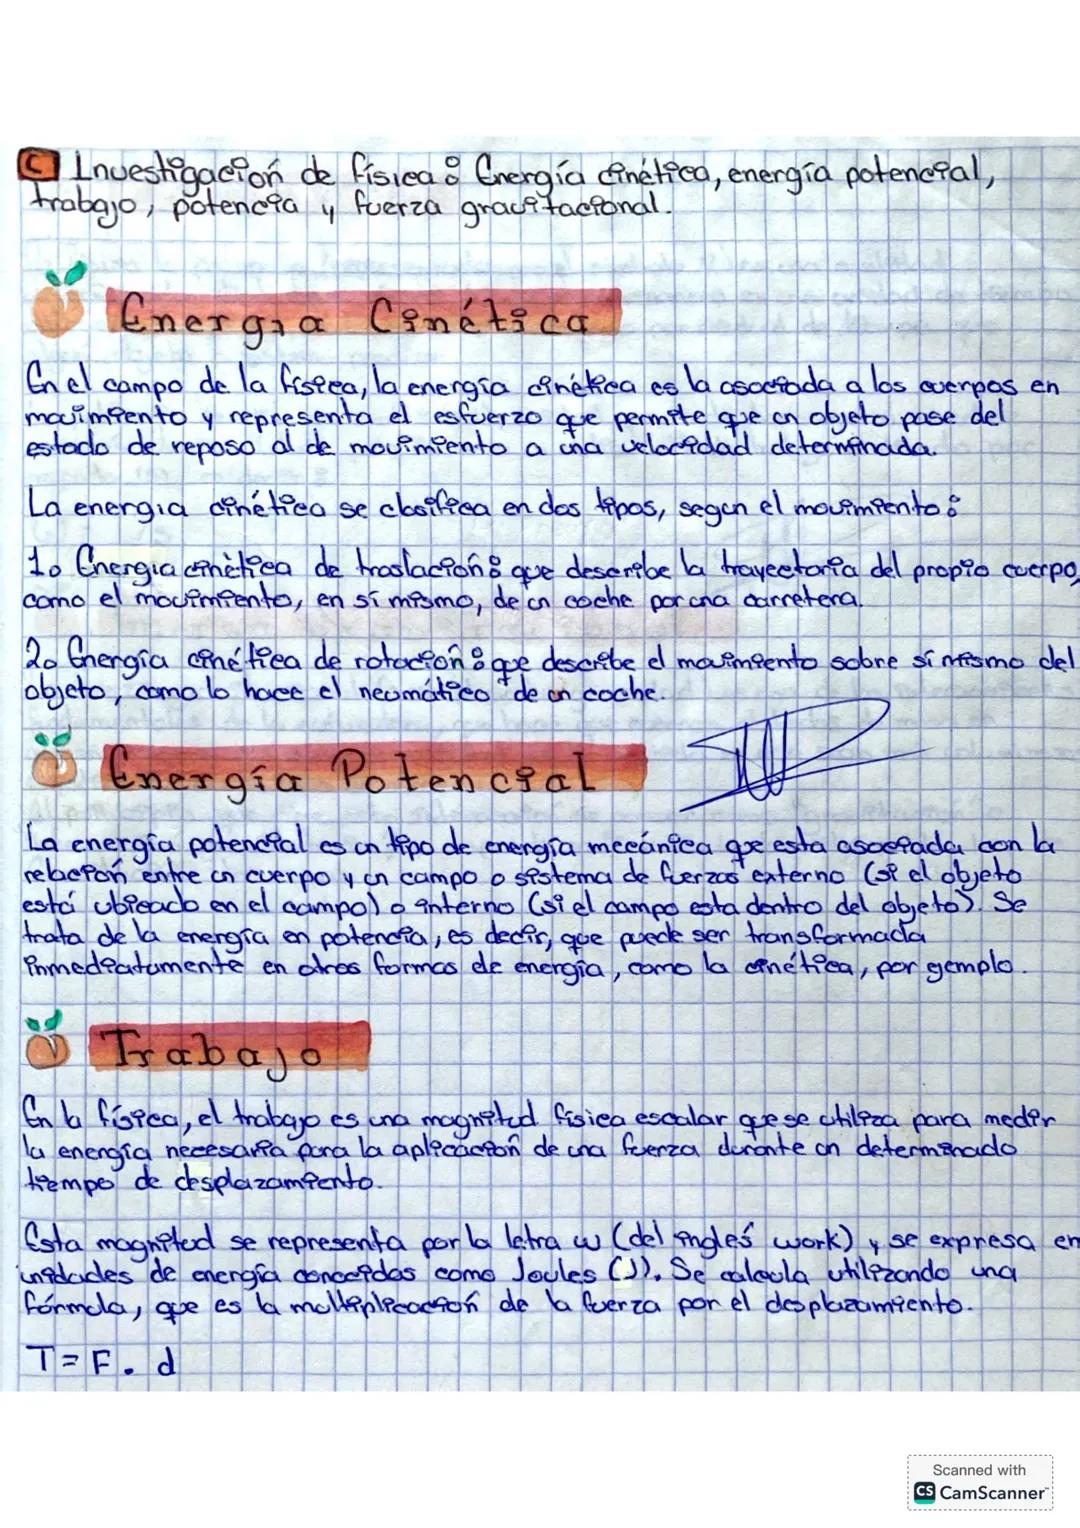 C Investigación de física: Energía cinética, energía potencial,
trabajo, potencia y fuerza gravitacional.
Energía Cinética
En el campo de la física, la energía cinética es la asociada a los cuerpos en
movimiento y representa el esfuerzo que permite que un objeto pase del
estado de reposo al de movimiento a una velocidad determinada.
La energia cinética se clasifica en dos tipos, segun el movimiento:
1. Energia cinètica de traslación: que describe la trayectoria del propio cuerpo,
como el movimiento, en sí mismo, de un coche por una carretera.
2. Energía cinética de rotación: que describe el movimiento sobre sí mismo del
objeto, como lo hace el neumático de un coche.
Energía Potencial
La energía potencial es un tipo de energía mecánica que esta asociada con la
relación entre un cuerpo y un campo o sistema de fuerzas externo (si el objeto
está ubicado en el campo) o interno (si el campo esta dentro del objeto). Se
trata de la energía en potencia, es decir, que puede ser transformada
inmediatamente en otras formas de energía, como la cinética, por gemplo.
Trabajo
En la física, el trabajo es una magnitud física escalar que se utiliza para medir
la energía necesaria para la aplicación de una fuerza durante un determinado
tiempo de desplazamiento.
Esta magnitud se representa por la letra w (del inglés work) y se expresa en
unidades de energía conocidas como Joules (J). Se calcula utilizando una
fórmula, que es la multiplicación de la fuerza por el desplazamiento.
T = F . d
Scanned with
CS CamScanner